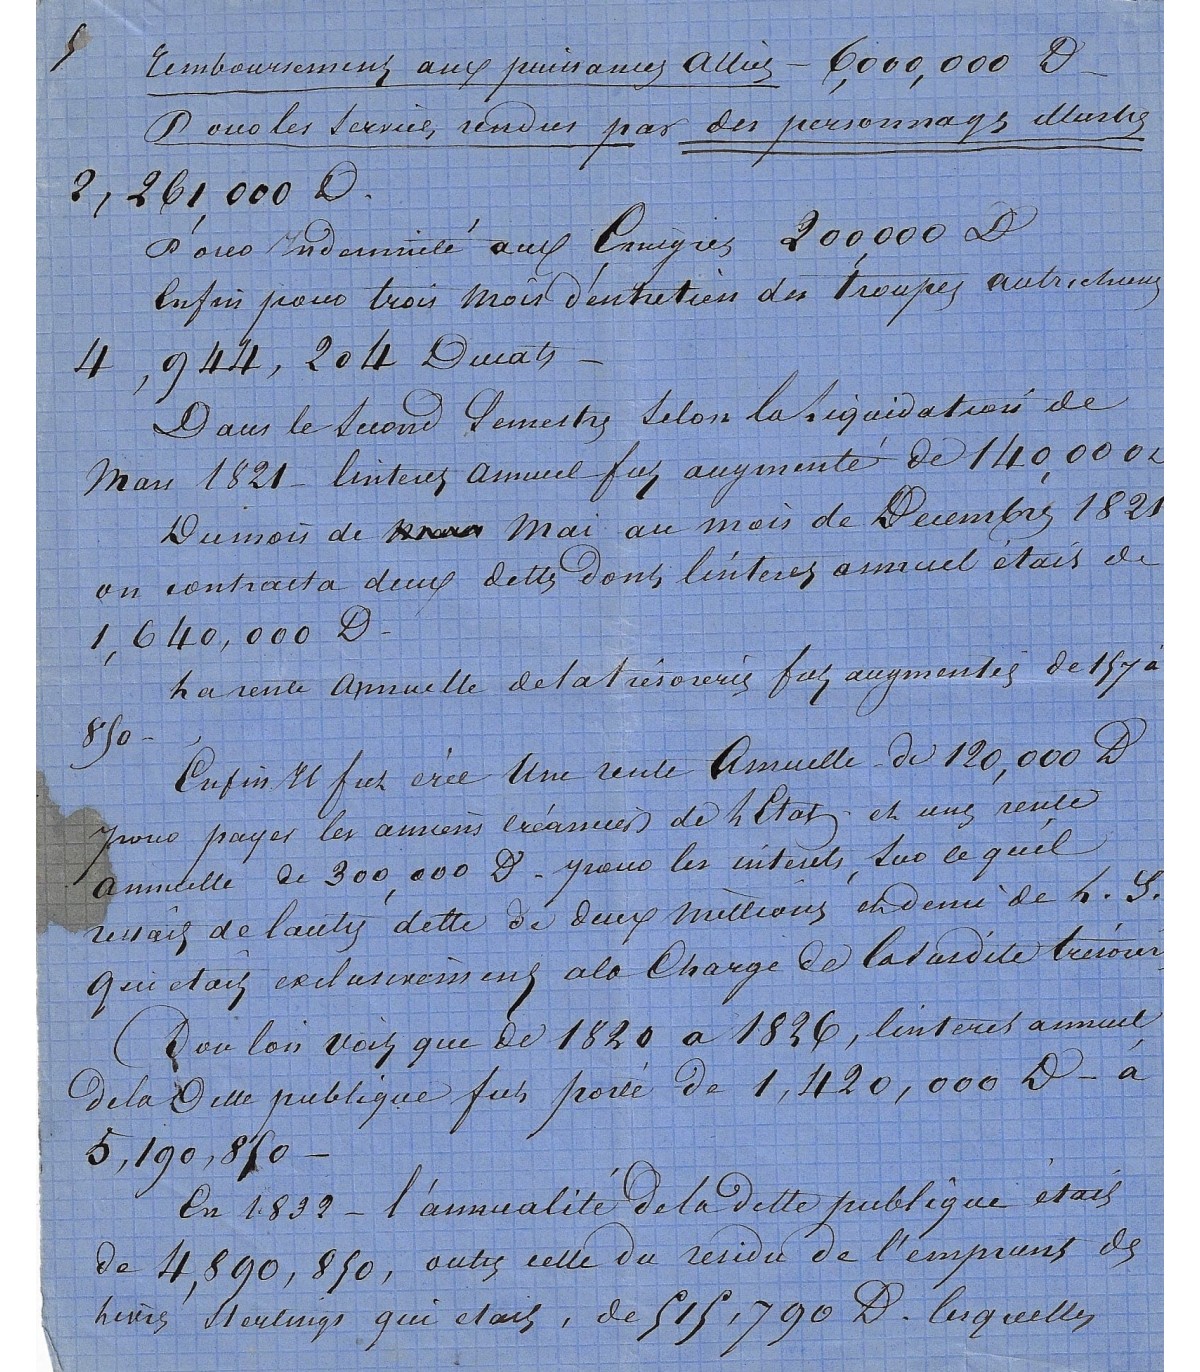 5
Remboursement aux puissances Alliés – 6,000,000 D –
Pour les services rendus par des personnages illustres
2,261,000 D.
Pour Indemnité aux Emigrés 200,000 D
Enfin pour trois mois d'entretien des Troupes autrichiens
4,944,204 Ducats –
Dans le second Semestre selon la liquidation de
Mars 1821 – l'interet annuel fut augmenté de 140,000
Du mois de Mai au mois de Decembre 1821
on contracta deux dette dont l'interet annuel était de
1,640,000 D –
La rente Annuelle de la trésorerie fut augmentée de 157 à
850 –
Enfin Il fut crée Une rente Annuelle de 120,000 D
pour payer les anciens créanciers de L'Etat et une rente
annuelle de 300,000 D – pour les interets, sur le quel
restait de l'autre dette de deux millions et demi de L. S.
qui etait exclusivement a la Charge de la susdite trésorerie
D'ou l'on voit que de 1820 a 1826, l'interet annuel
de la Dette publique fut porté de 1,420,000 D – à
5,190,850 –
En 1832 – l'annualité de la dette publique était
de 4,890,850, outre celle du residu de l'emprunt de
livres Sterlings qui etait, de 515,790 D. lesquelles